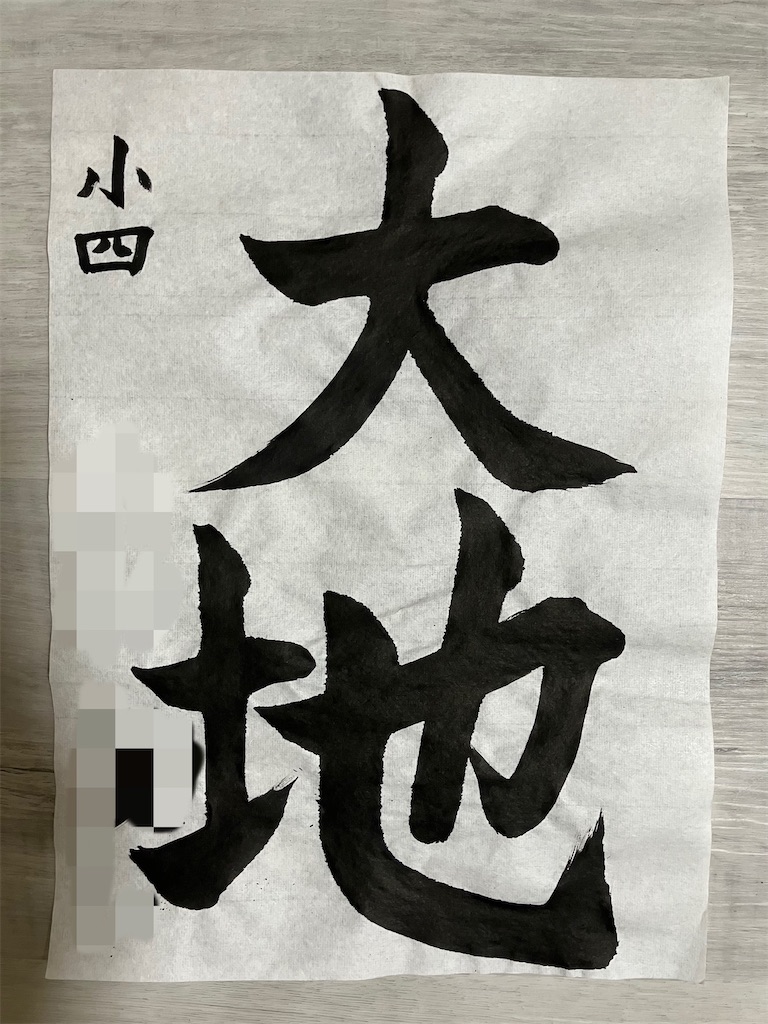 大地
小四